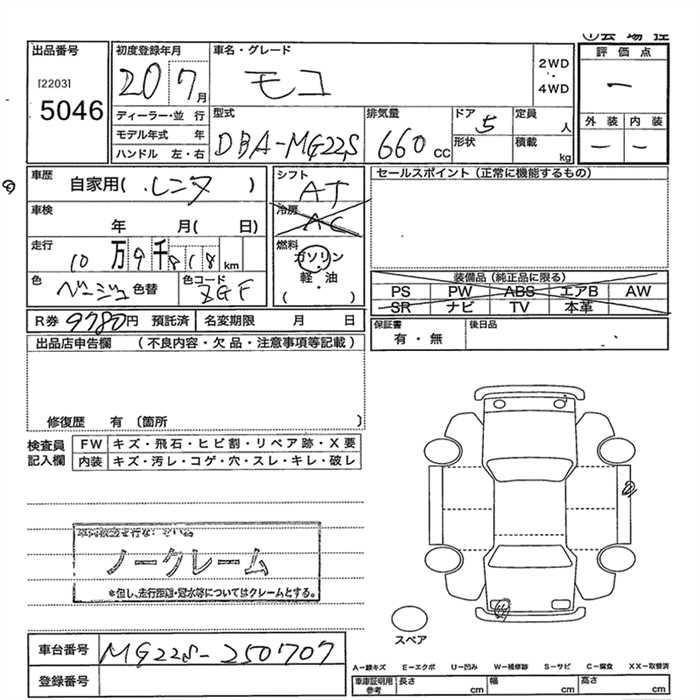 ①会場控
出品番号
[2203]
5046
初度登録年月
20 7月
ディーラー・並行
モデル年式 年
ハンドル 左・右
車名・グレード
モコ
2WD
・
4WD
型式
DBA-MG22S
排気量
660 cc
ドア 5
形状
定員
人
積載
kg
評価点
一
外装 内装
一 一
車歴
自家用( レンタ )
車検
年 月( 日)
走行
10万9千818km
色
ベージュ 色替
色コード
シフト
AT
冷房
AC
燃料
ガソリン
・
軽・油
( )
セールスポイント(正常に機能するもの)
装備品(純正品に限る)
PS PW ABS エアB AW
SR ナビ TV 本革
R券 9780円 預託済 名変期限 月 日
保証書
有・無
後日品
出品店申告欄 (不良内容・欠品・注意事項等記載)
修復歴 有〔箇所 〕
検査員
記入欄
FW キズ・飛石・ヒビ割・リペア跡・X要
内装 キズ・汚レ・コゲ・穴・スレ・キレ・破レ
ノークレーム
*但し、走行距離・冠水等についてはクレームとする。
スペア
車台番号 MG22S-250707
登録番号
A-線キズ E-エクボ U-凹み W-補修跡 S-サビ C-腐食 XX-取替済
車庫証明用
参考
長さ cm 幅 cm 高さ cm